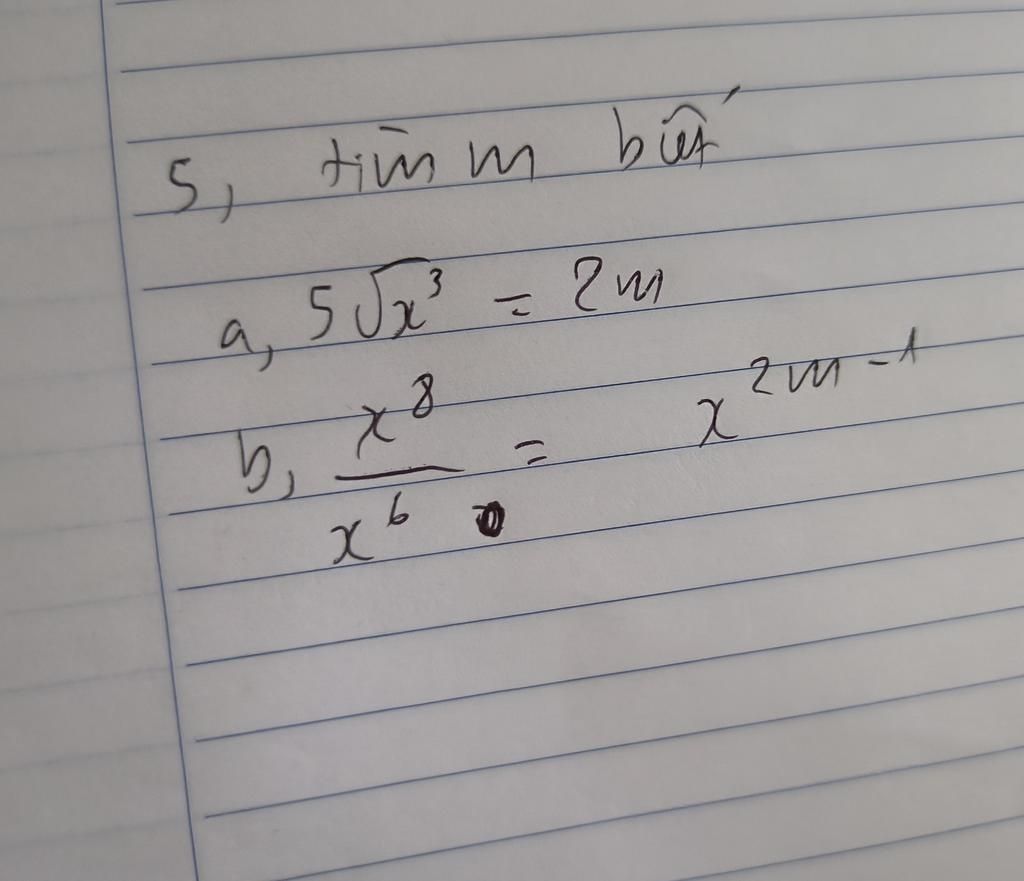 5, tìm m biết
a, 5√x³ = 2m
b, x⁸/x⁶ = x^(2m-1)